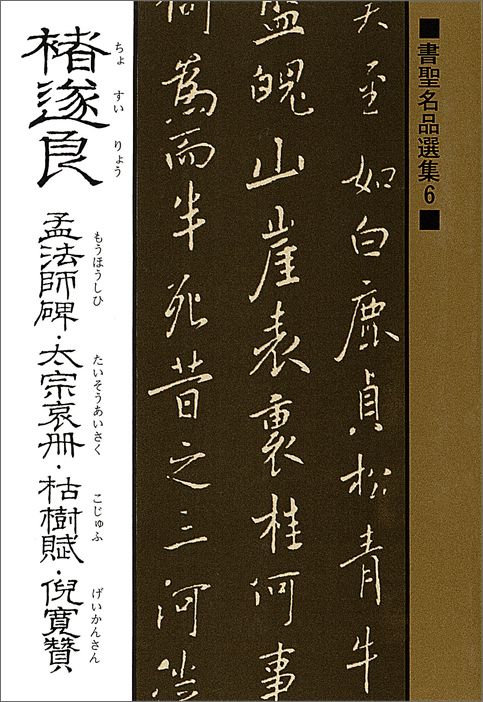 ■書聖名品選集6■
至如白鹿貞松青牛
盤魄山崖表裏桂何事
而半死昔之三河
褚遂良
ちょ すい りょう
孟法師碑・太宗哀冊・枯樹賦・倪寛贊
もうほうしひ たいそうあいさく こじゅふ げいかんさん